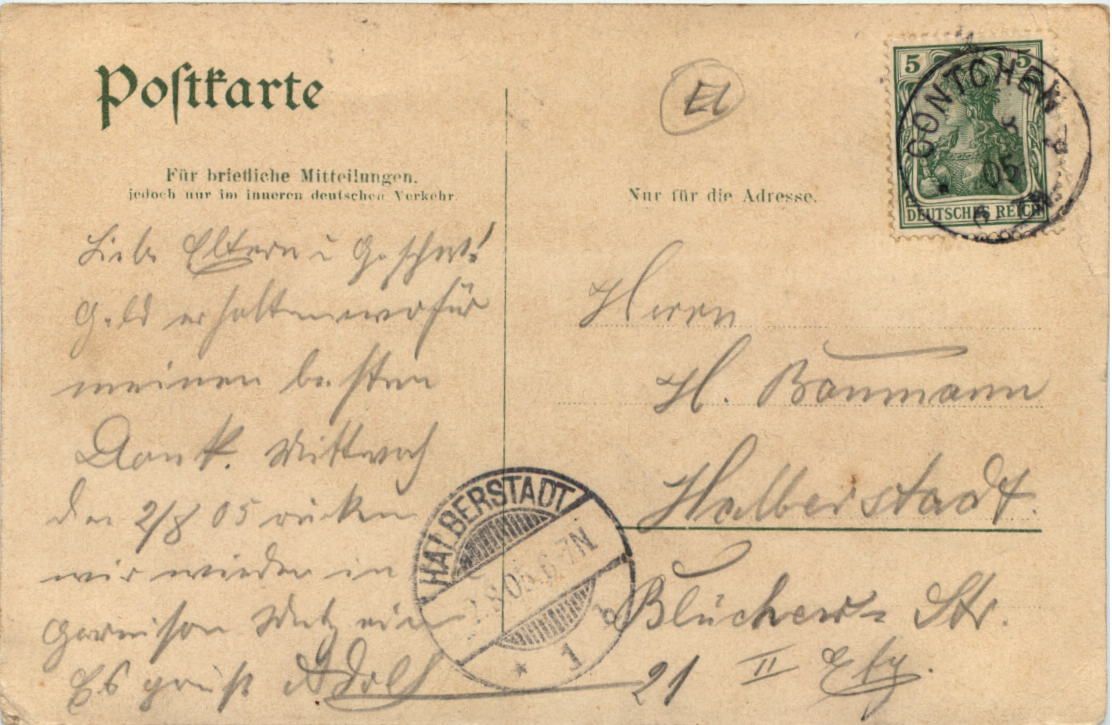 Postkarte
Für briefliche Mitteilungen,
jedoch nur im inneren deutschen Verkehr.
Liebe Eltern u Geschw!
Geld erhalten wofür
meinen besten
Dank. Mittwoch
den 2/8 05 rücken
wir wieder in
Garnison Metz ein
Es grüßt Adolf
Nur für die Adresse.
5 5
DEUTSCHES REICH
GONTCHEN
05
Herrn
H. Baumann
Halberstadt.
Blücher Str.
21 II Etg.
HALBERSTADT
2.8.05.6-7N
* 1 b